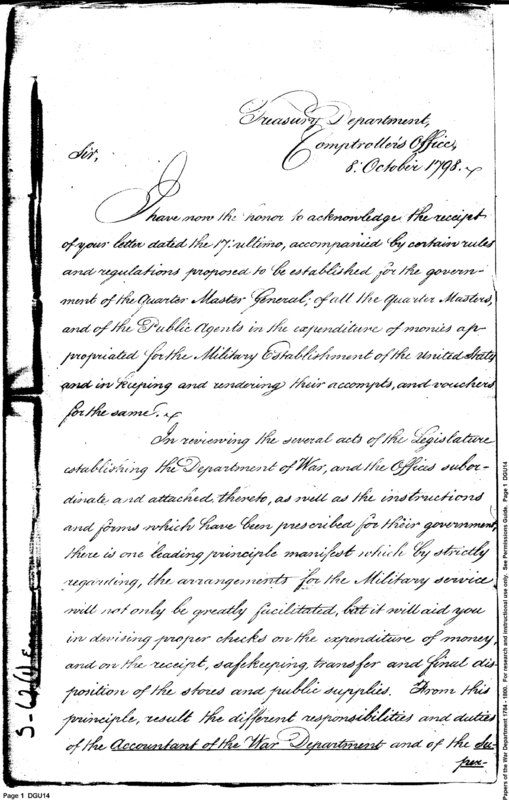 Treasury Department,
Comptroller's Office,
8: October 1798.
Sir,
I have now the honor to acknowledge the receipt
of your letter dated the 17: ultimo, accompanied by certain rules
and regulations proposed to be established for the govern-
ment of the Quarter Master General; of all the Quarter Masters,
and of the Public Agents in the expenditure of monies ap-
propriated for the Military Establishment of the United States
and in keeping and rendering their accompts, and vouchers
for the same.
In reviewing the several acts of the Legislature
establishing the Department of War, and the Offices subor-
dinate and attached thereto, as well as the instructions
and forms which have been prescribed for their government,
there is one leading principle manifest which by strictly
regarding, the arrangements for the Military service
will not only be greatly facilitated, but it will aid you
in devising proper checks on the expenditure of money,
and on the receipt, safekeeping, transfer and final dis-
position of the stores and public supplies. From this
principle, result the different responsibilities and duties
of the Accountant of the War Department and of the Su-
per-
Page 1 DGU14
Papers of the War Department 1784 - 1800. For research and instructional use only. See Permissions Guide. Page 1 DGU14